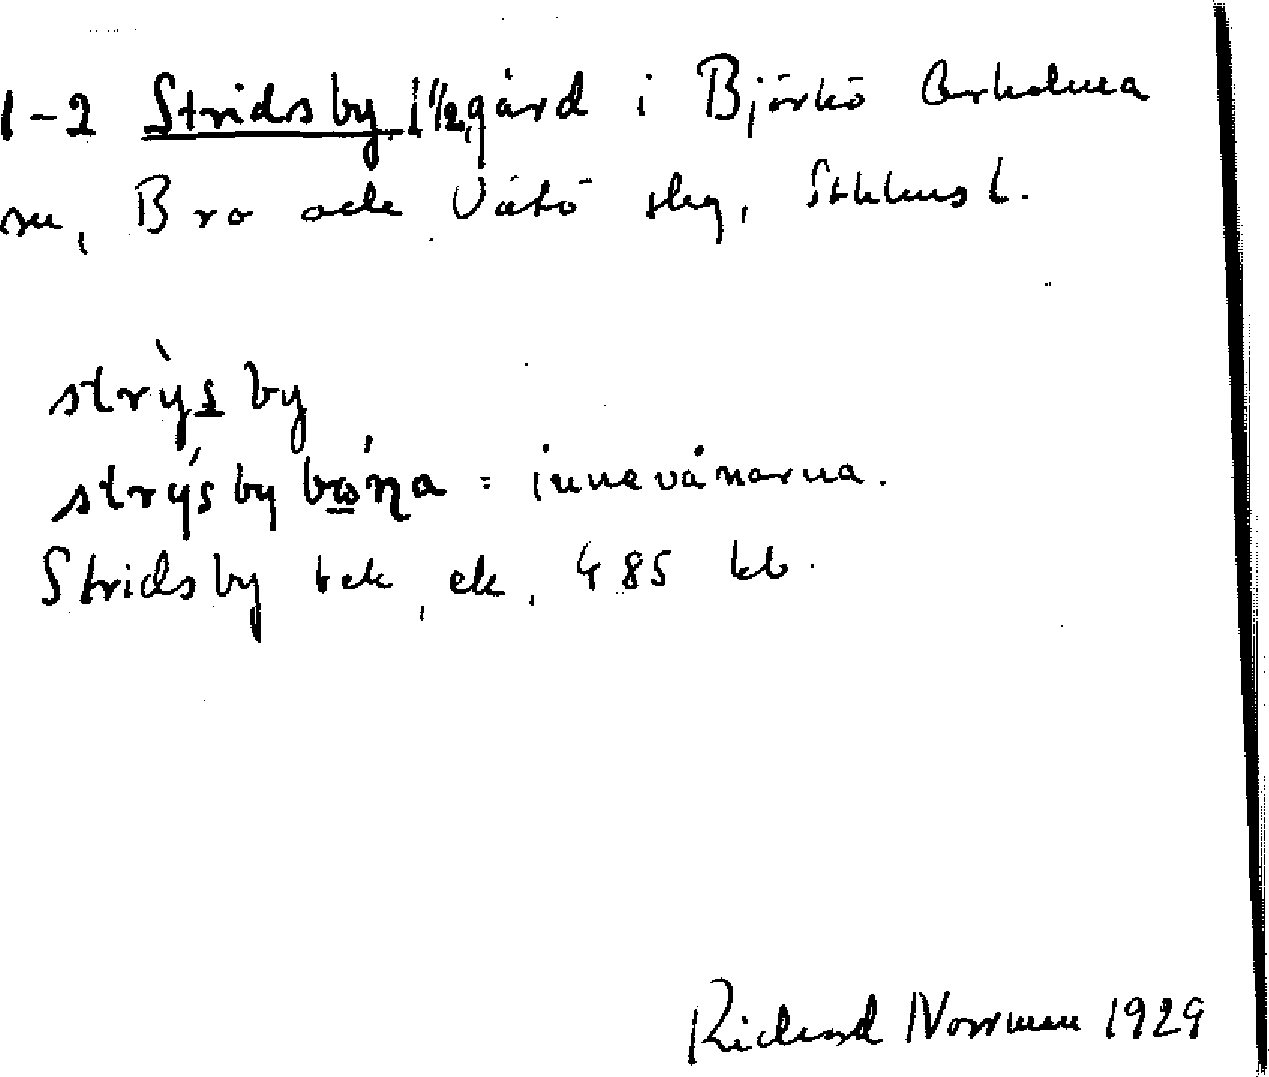 1-2 Stridsby 1 1/2 gård i Björkö Arholma
sn, Bro och Vätö skg, Sthlms l.
strỳs by
strýs by bǿŋa = innevånarna.
Stridsby tek, ek, 485 kb.
Rickard Norrman 1929